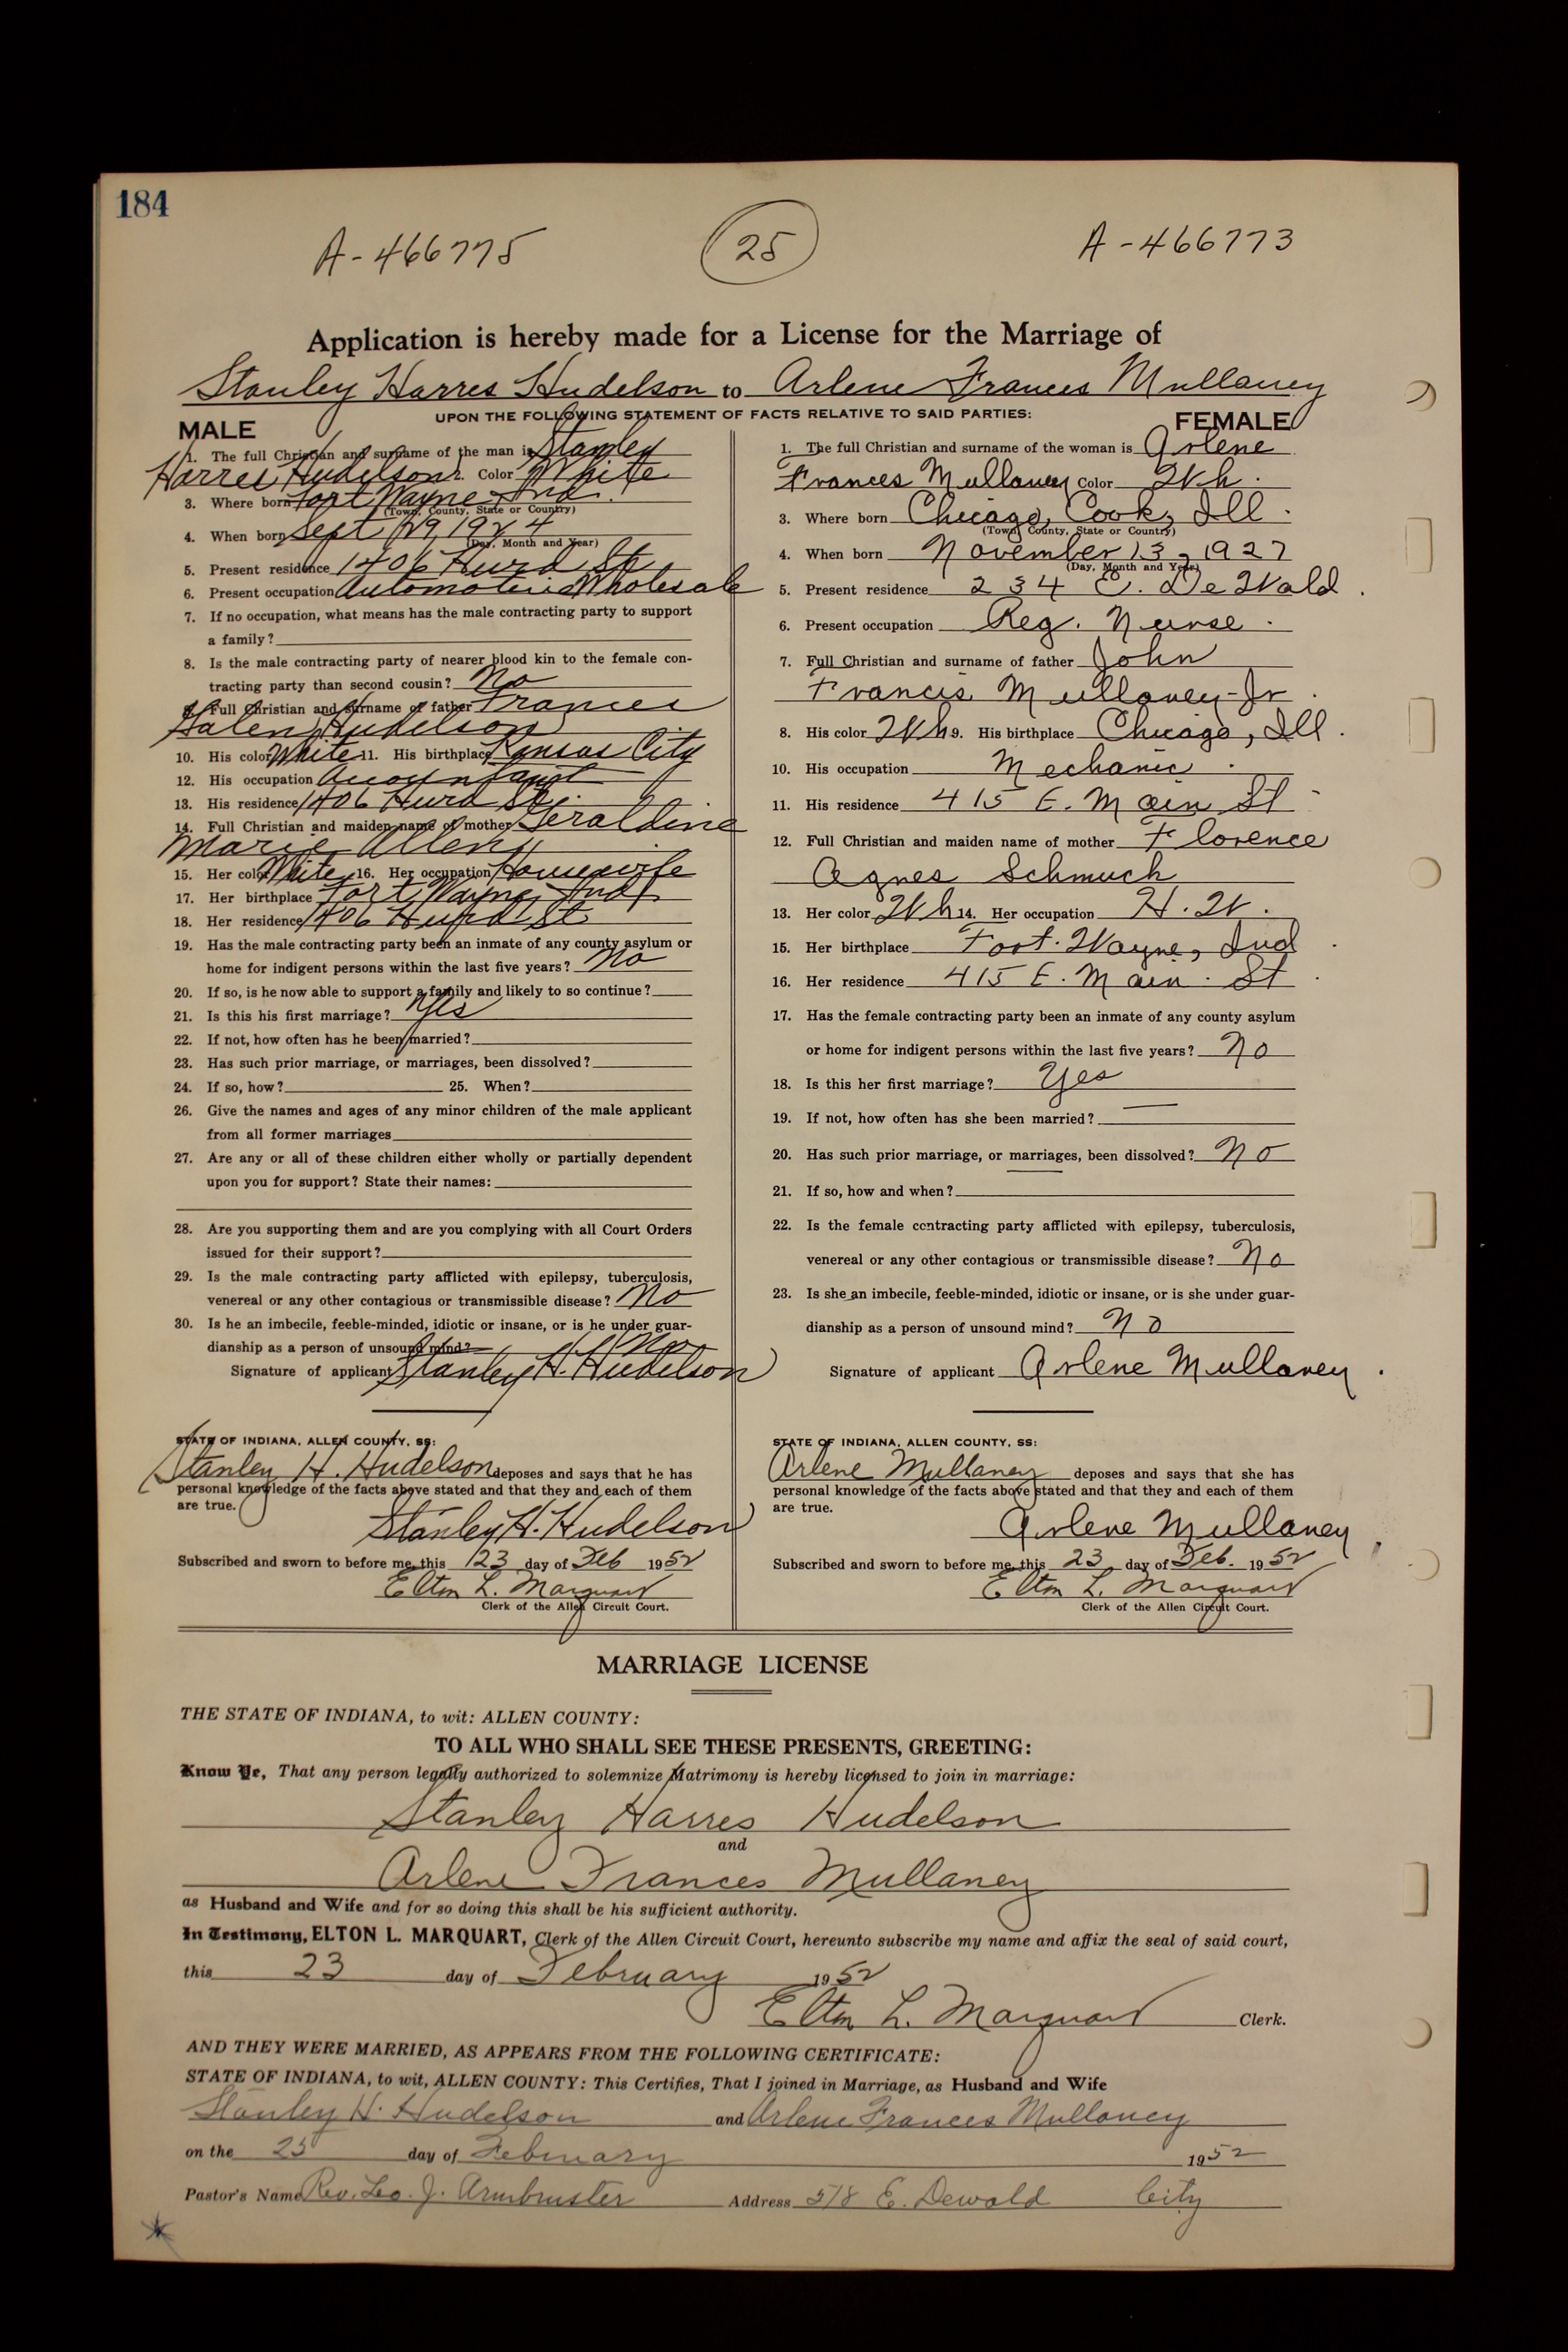 184
A-466775
25
A-466773
Application is hereby made for a License for the Marriage of
Stanley Harres Hudelson to Arlene Frances Mullaney
UPON THE FOLLOWING STATEMENT OF FACTS RELATIVE TO SAID PARTIES:
MALE
1. The full Christian and surname of the man is Stanley
Harres Hudelson 2. Color White
3. Where born Fort Wayne, Ind.
(Town, County, State or Country)
4. When born Sept 29, 1924
(Day, Month and Year)
5. Present residence 1406 Hurd St.
6. Present occupation Automotive Wholesale
7. If no occupation, what means has the male contracting party to support
a family?
8. Is the male contracting party of nearer blood kin to the female con-
tracting party than second cousin? No
9. Full Christian and surname of father Frances
Halen Hudelson
10. His color White 11. His birthplace Kansas City
12. His occupation Accountant
13. His residence 1406 Hurd St.
14. Full Christian and maiden name of mother Geraldine
Marie Allen
15. Her color White 16. Her occupation Housewife
17. Her birthplace Fort Wayne, Ind.
18. Her residence 1406 Hurd St
19. Has the male contracting party been an inmate of any county asylum or
home for indigent persons within the last five years? No
20. If so, is he now able to support a family and likely to so continue?
21. Is this his first marriage? Yes
22. If not, how often has he been married?
23. Has such prior marriage, or marriages, been dissolved?
24. If so, how? 25. When?
26. Give the names and ages of any minor children of the male applicant
from all former marriages
27. Are any or all of these children either wholly or partially dependent
upon you for support? State their names:
28. Are you supporting them and are you complying with all Court Orders
issued for their support?
29. Is the male contracting party afflicted with epilepsy, tuberculosis,
venereal or any other contagious or transmissible disease? No
30. Is he an imbecile, feeble-minded, idiotic or insane, or is he under guar-
dianship as a person of unsound mind? No
Signature of applicant Stanley H. Hudelson
STATE OF INDIANA, ALLEN COUNTY, SS:
Stanley H. Hudelson deposes and says that he has
personal knowledge of the facts above stated and that they and each of them
are true.
Stanley H. Hudelson
Subscribed and sworn to before me, this 23 day of Feb 1952
Elton L. Marquart
Clerk of the Allen Circuit Court.
FEMALE
1. The full Christian and surname of the woman is Arlene
Frances Mullaney Color Wh.
3. Where born Chicago, Cook, Ill.
(Town, County, State or Country)
4. When born November 13, 1927
(Day, Month and Year)
5. Present residence 234 E. DeWald.
6. Present occupation Reg. Nurse.
7. Full Christian and surname of father John
Francis Mullaney-Jr.
8. His color Wh 9. His birthplace Chicago, Ill.
10. His occupation Mechanic.
11. His residence 415 E. Main St
12. Full Christian and maiden name of mother Florence
Agnes Schmuch
13. Her color Wh 14. Her occupation H. W.
15. Her birthplace Foot. Wayne, Ind.
16. Her residence 415 E. Main. St.
17. Has the female contracting party been an inmate of any county asylum
or home for indigent persons within the last five years? No
18. Is this her first marriage? Yes
19. If not, how often has she been married? —
20. Has such prior marriage, or marriages, been dissolved? No
21. If so, how and when? —
22. Is the female contracting party afflicted with epilepsy, tuberculosis,
venereal or any other contagious or transmissible disease? No
23. Is she an imbecile, feeble-minded, idiotic or insane, or is she under guar-
dianship as a person of unsound mind? No
Signature of applicant Arlene Mullaney.
STATE OF INDIANA, ALLEN COUNTY, SS:
Arlene Mullaney deposes and says that she has
personal knowledge of the facts above stated and that they and each of them
are true.
Arlene Mullaney
Subscribed and sworn to before me, this 23 day of Feb. 1952
Elton L. Marquart
Clerk of the Allen Circuit Court.
MARRIAGE LICENSE
THE STATE OF INDIANA, to wit: ALLEN COUNTY:
TO ALL WHO SHALL SEE THESE PRESENTS, GREETING:
Know Ye, That any person legally authorized to solemnize Matrimony is hereby licensed to join in marriage:
Stanley Harres Hudelson
and
Arlene Frances Mullaney
as Husband and Wife and for so doing this shall be his sufficient authority.
In Testimony, ELTON L. MARQUART, Clerk of the Allen Circuit Court, hereunto subscribe my name and affix the seal of said court,
this 23 day of February 1952
Elton L. Marquart Clerk.
AND THEY WERE MARRIED, AS APPEARS FROM THE FOLLOWING CERTIFICATE:
STATE OF INDIANA, to wit, ALLEN COUNTY: This Certifies, That I joined in Marriage, as Husband and Wife
Stanley H. Hudelson and Arlene Frances Mullaney
on the 25 day of February 1952
Pastor's Name Rev. Leo. J. Armbruster Address 518 E. Dewald City